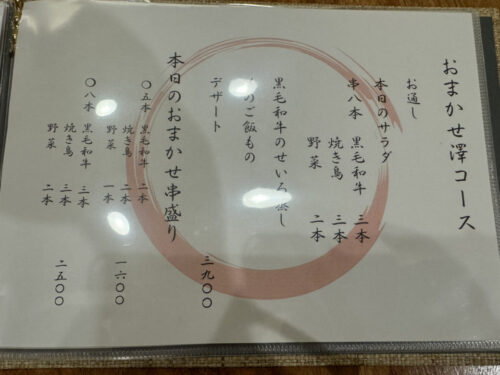 おまかせ澤コース
お通し
本日のサラダ
串八本 黒毛和牛 三本
焼き鳥 三本
野菜 二本
黒毛和牛のせいろ蒸し
のご飯もの
デザート
三九〇〇
本日のおまかせ串盛り
〇五本 黒毛和牛 二本
焼き鳥 二本
野菜 一本
一六〇〇
〇八本 黒毛和牛 三本
焼き鳥 三本
野菜 二本
二五〇〇